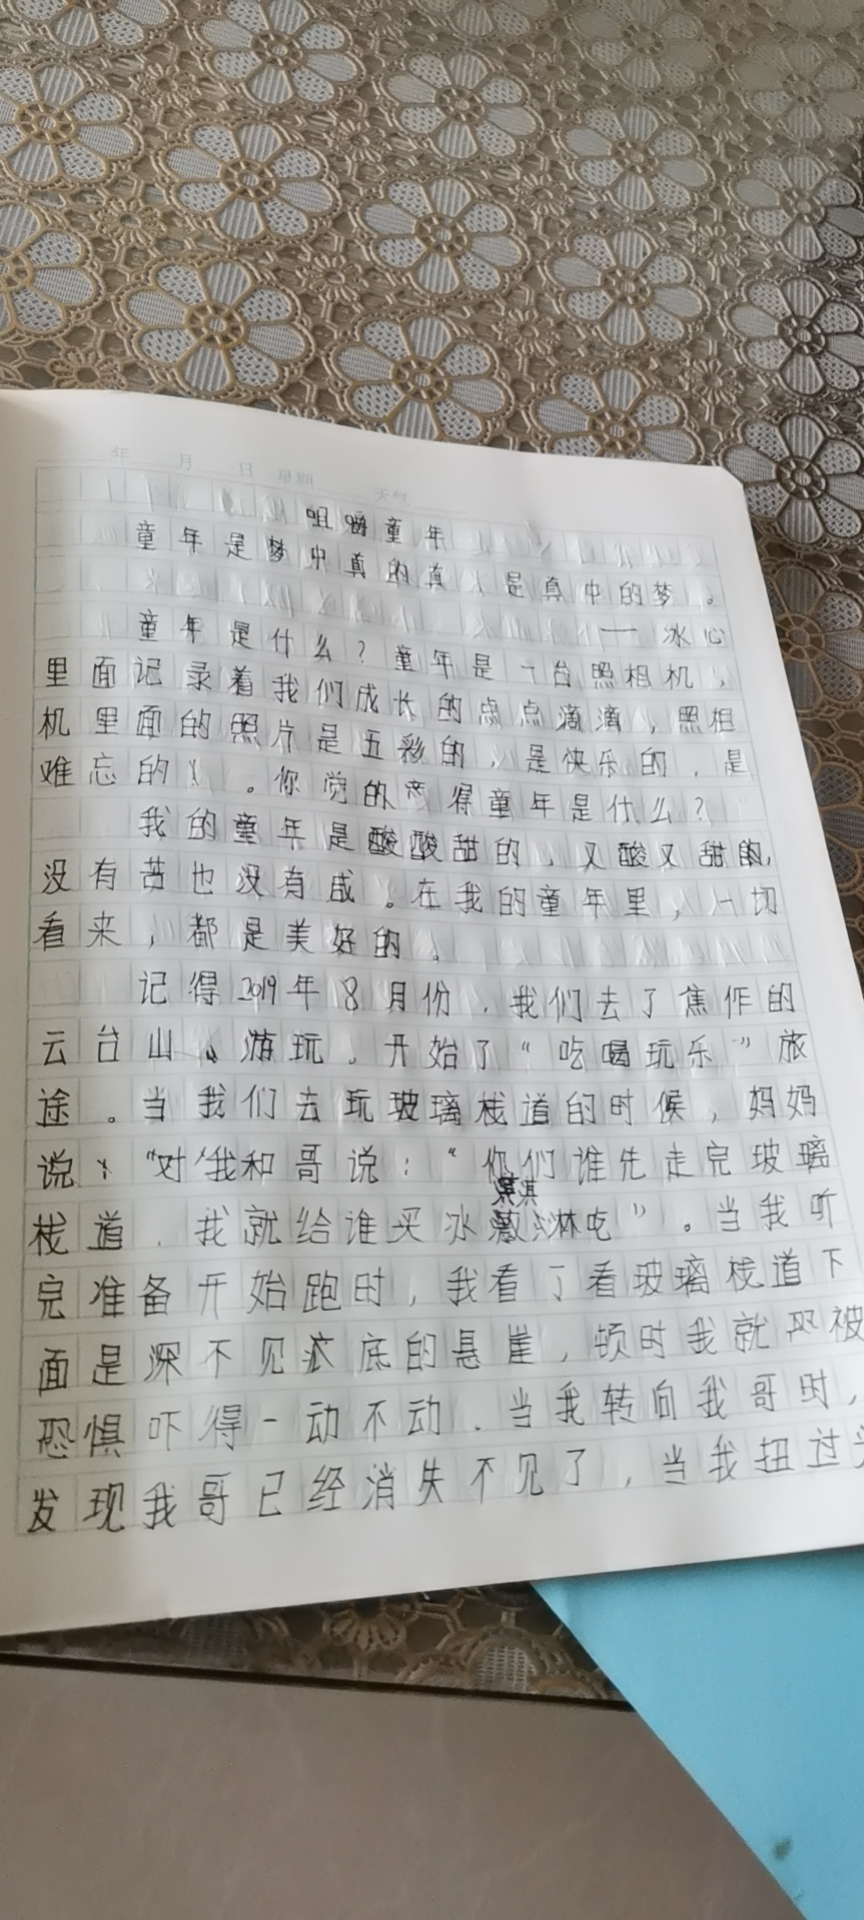 年 月 日 星期 天气
咀嚼童年
童年是梦中真的真，是真中的梦。
——冰心
童年是什么？童年是一台照相机，
里面记录着我们成长的点点滴滴，照相
机里面的照片是五彩的，是快乐的，是
难忘的。你觉的得童年是什么？
我的童年是酸酸甜的，又酸又甜的，
没有苦也没有咸。在我的童年里，一切
看来，都是美好的。
记得2019年8月份，我们去了焦作的
云台山游玩。开始了“吃喝玩乐”旅
途。当我们去玩玻璃栈道的时候，妈妈
说：“对我和哥说：“你们谁先走完玻璃
栈道，我就给谁买冰淇淋吃”。当我听
完准备开始跑时，我看了看玻璃栈道下
面是深不见底的悬崖，顿时我就恐被
恐惧吓得一动不动，当我转向我哥时，
发现我哥已经消失不见了，当我扭过头